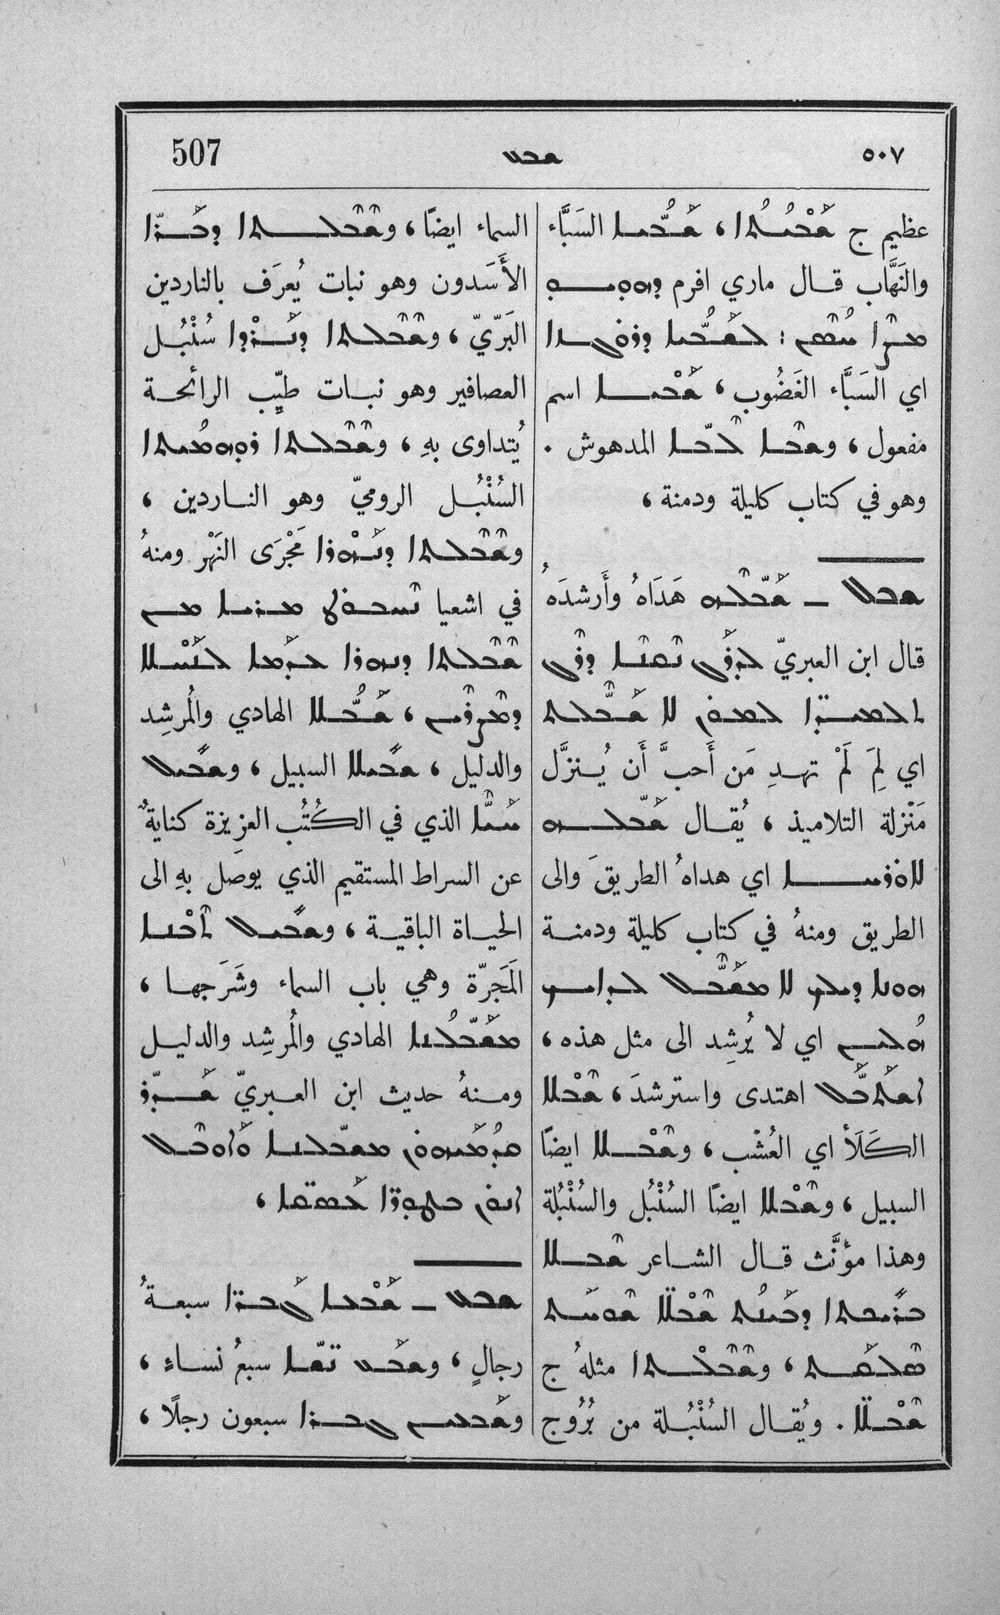 ٥٠٧
ܫܒܥ
507
عظيم ج ܫܰܒ̈ܝܳܬܳܐ ، ܫܰܒܳܝܐ السَبَّاء
والنَهَّاب قال ماري افرم
ܠܫܰܒܳܝܐ ܕܪܘܓܙܐ
اي السَبَّاء الغَضُوب ، ܫܰܒܝܐ اسم
مفعول ، ܘܫܒܐ ܠܒܐ المدهوش .
وهو في كتاب كليلة ودمنة ،
ܫܒܠ ـ ܫܰܒܠܗ هَدَاهُ وأَرشدَهُ
قال ابن العبريّ
ܠܐ ܫܰܒܠܬ
اي لِمَ لَمْ تهدِ مَن أَحبَّ أَن يُنزَّل
مَنْزلة التلاميذ ، يُقال ܫܰܒܠܗ
ܠܐܘܪܚܐ اي هداهُ الطريقَ والى
الطريق ومنهُ في كتاب كليلة ودمنة
ܠܐ ܡܫܰܒܠ
ܗܳܠܝܢ اي لا يُرشِد الى مثل هذه ،
ܐܫܬܰܒܠ اهتدى واسترشدَ ، ܫܒܠܐ
الكَلَأ اي العُشْب ، ܘܫܒܠܐ ايضًا
السبيل ، ܘܫܒܠܐ ايضًا السُنْبُل والسُنْبُلة
وهذا مؤنَّث قال الشاعر ܫܒܠܐ
ܒܪܝܟܬܐ
ܣܠܩܬ ، ܘܫܒܠܬܐ مثلهُ ج
ܫܒ̈ܠܐ . ويُقال السُنْبُلة من بُرُوج
السماء ايضًا ، ܘܫܒܠܬܐ ܕܒܪܐ
الأَسَدون وهو نبات يُعرَف بالناردين
البَرّيّ ، ܘܫܒܠܬܐ سُنْبُل
العصافير وهو نبات طيِّب الرائحة
يُتداوى بهِ ، ܘܫܒܠܬܐ ܪܗܘܡܝܬܐ
السُنْبُل الروميّ وهو الناردين ،
ܘܫܒܠܬܐ ܕܢܰܗܪܐ مَجْرَى النَهْر ومنهُ
في اشعيا ܢܚܒܘܛ ܡܪܝܐ ܡܢ
ܫܒܠܬܐ ܕܢܗܪܐ ܥܕܡܐ ܠܢܰܚܠܐ
ܕܡܨܪܝܢ ، ܫܰܒܳܠܐ الهادي والمُرشِد
والدليل ، ܫܒܝܠܐ السبيل ، ܘܫܒܝܠ
ܚܰܝܐ الذي في الكُتُب العزيزة كنايةٌ
عن السراط المستقيم الذي يوصَل بهِ الى
الحياة الباقية ، ܘܫܒܝܠ ܬܒܢܐ
المَجَرّة وهي باب السماء وشَرَجها ،
ܡܫܰܒܠܳܢܐ الهادي والمُرشِد والدليل
ومنهُ حديث ابن العبريّ ܫܰܕܪ
ܩܕܡܝܗܘܢ ܡܫܒܠܢܐ ܕܐܘܒܠ
ܐܢܘܢ ܒܛܘܪܐ ܥܣܩܐ ،
ܫܒܥ ـ ܫܰܒܥܐ ܓܰܒܪܐ سبعةُ
رجالٍ ، ܘܫܒܰܥ ܢܫܐ سبعُ نساءٍ ،
ܘܫܰܒܥܝܢ ܓܒܪܐ سبعون رجلًا ،